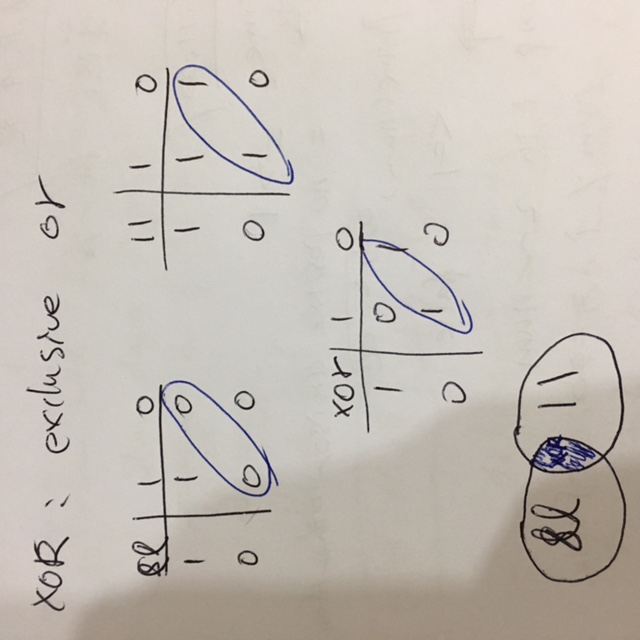 XOR : exclusive or
&& 1 0
1 1 0
0 0 0
|| 1 0
1 1 1
0 1 0
xor 1 0
1 0 1
0 1 0
&& XOR ||